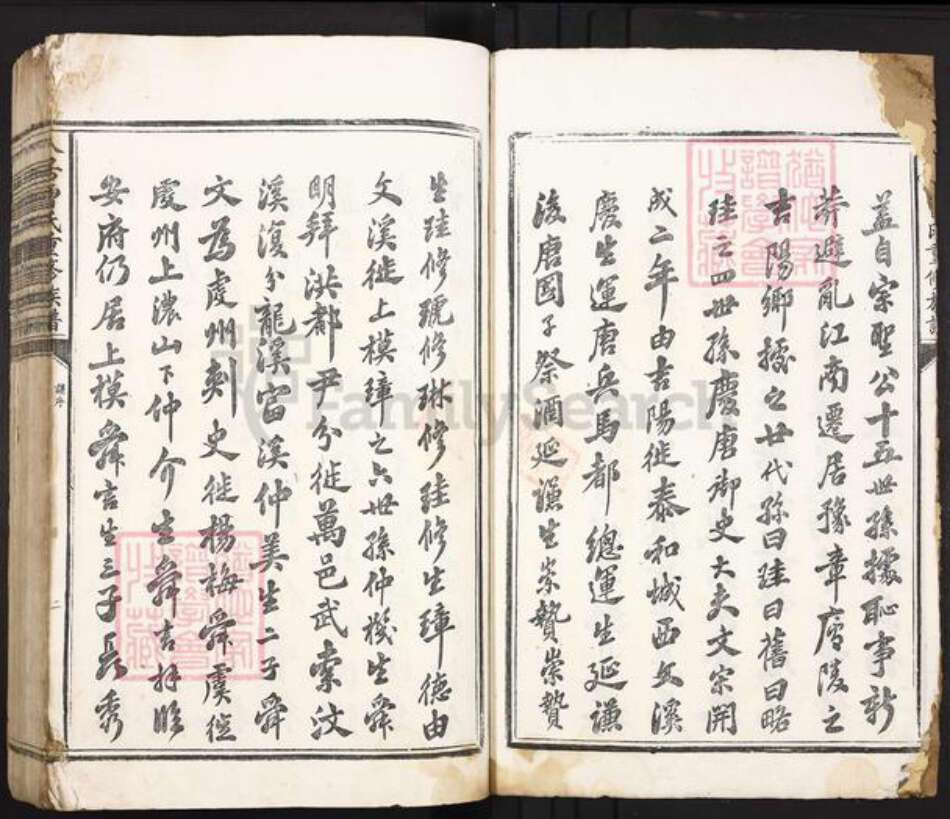 蓋自宗聖公十五世孫據恥事新
莽避亂江南遷居豫章廬陵之
吉陽鄉據之廿代孫曰珪曰舊曰略
珪之四世孫慶唐御史大夫文宗開
成二年由吉陽徙泰和城西文溪
慶生運唐兵馬都總運生延謙
後唐國子祭酒延謙生崇贊崇贊
生珪修號修琳修珪修生璋德由
文溪徙上模璋之六世孫仲機生舜
明拜洪都尹分徙萬邑武索汶
溪復分龍溪富溪仲美生二子舜
文為虔州刺史徙楊梅舜虞徙
虔州上濃山下仲介生舜言於臨
安府仍居上模舜言生三子長秀
族譜
譜序
二
FamilySearch